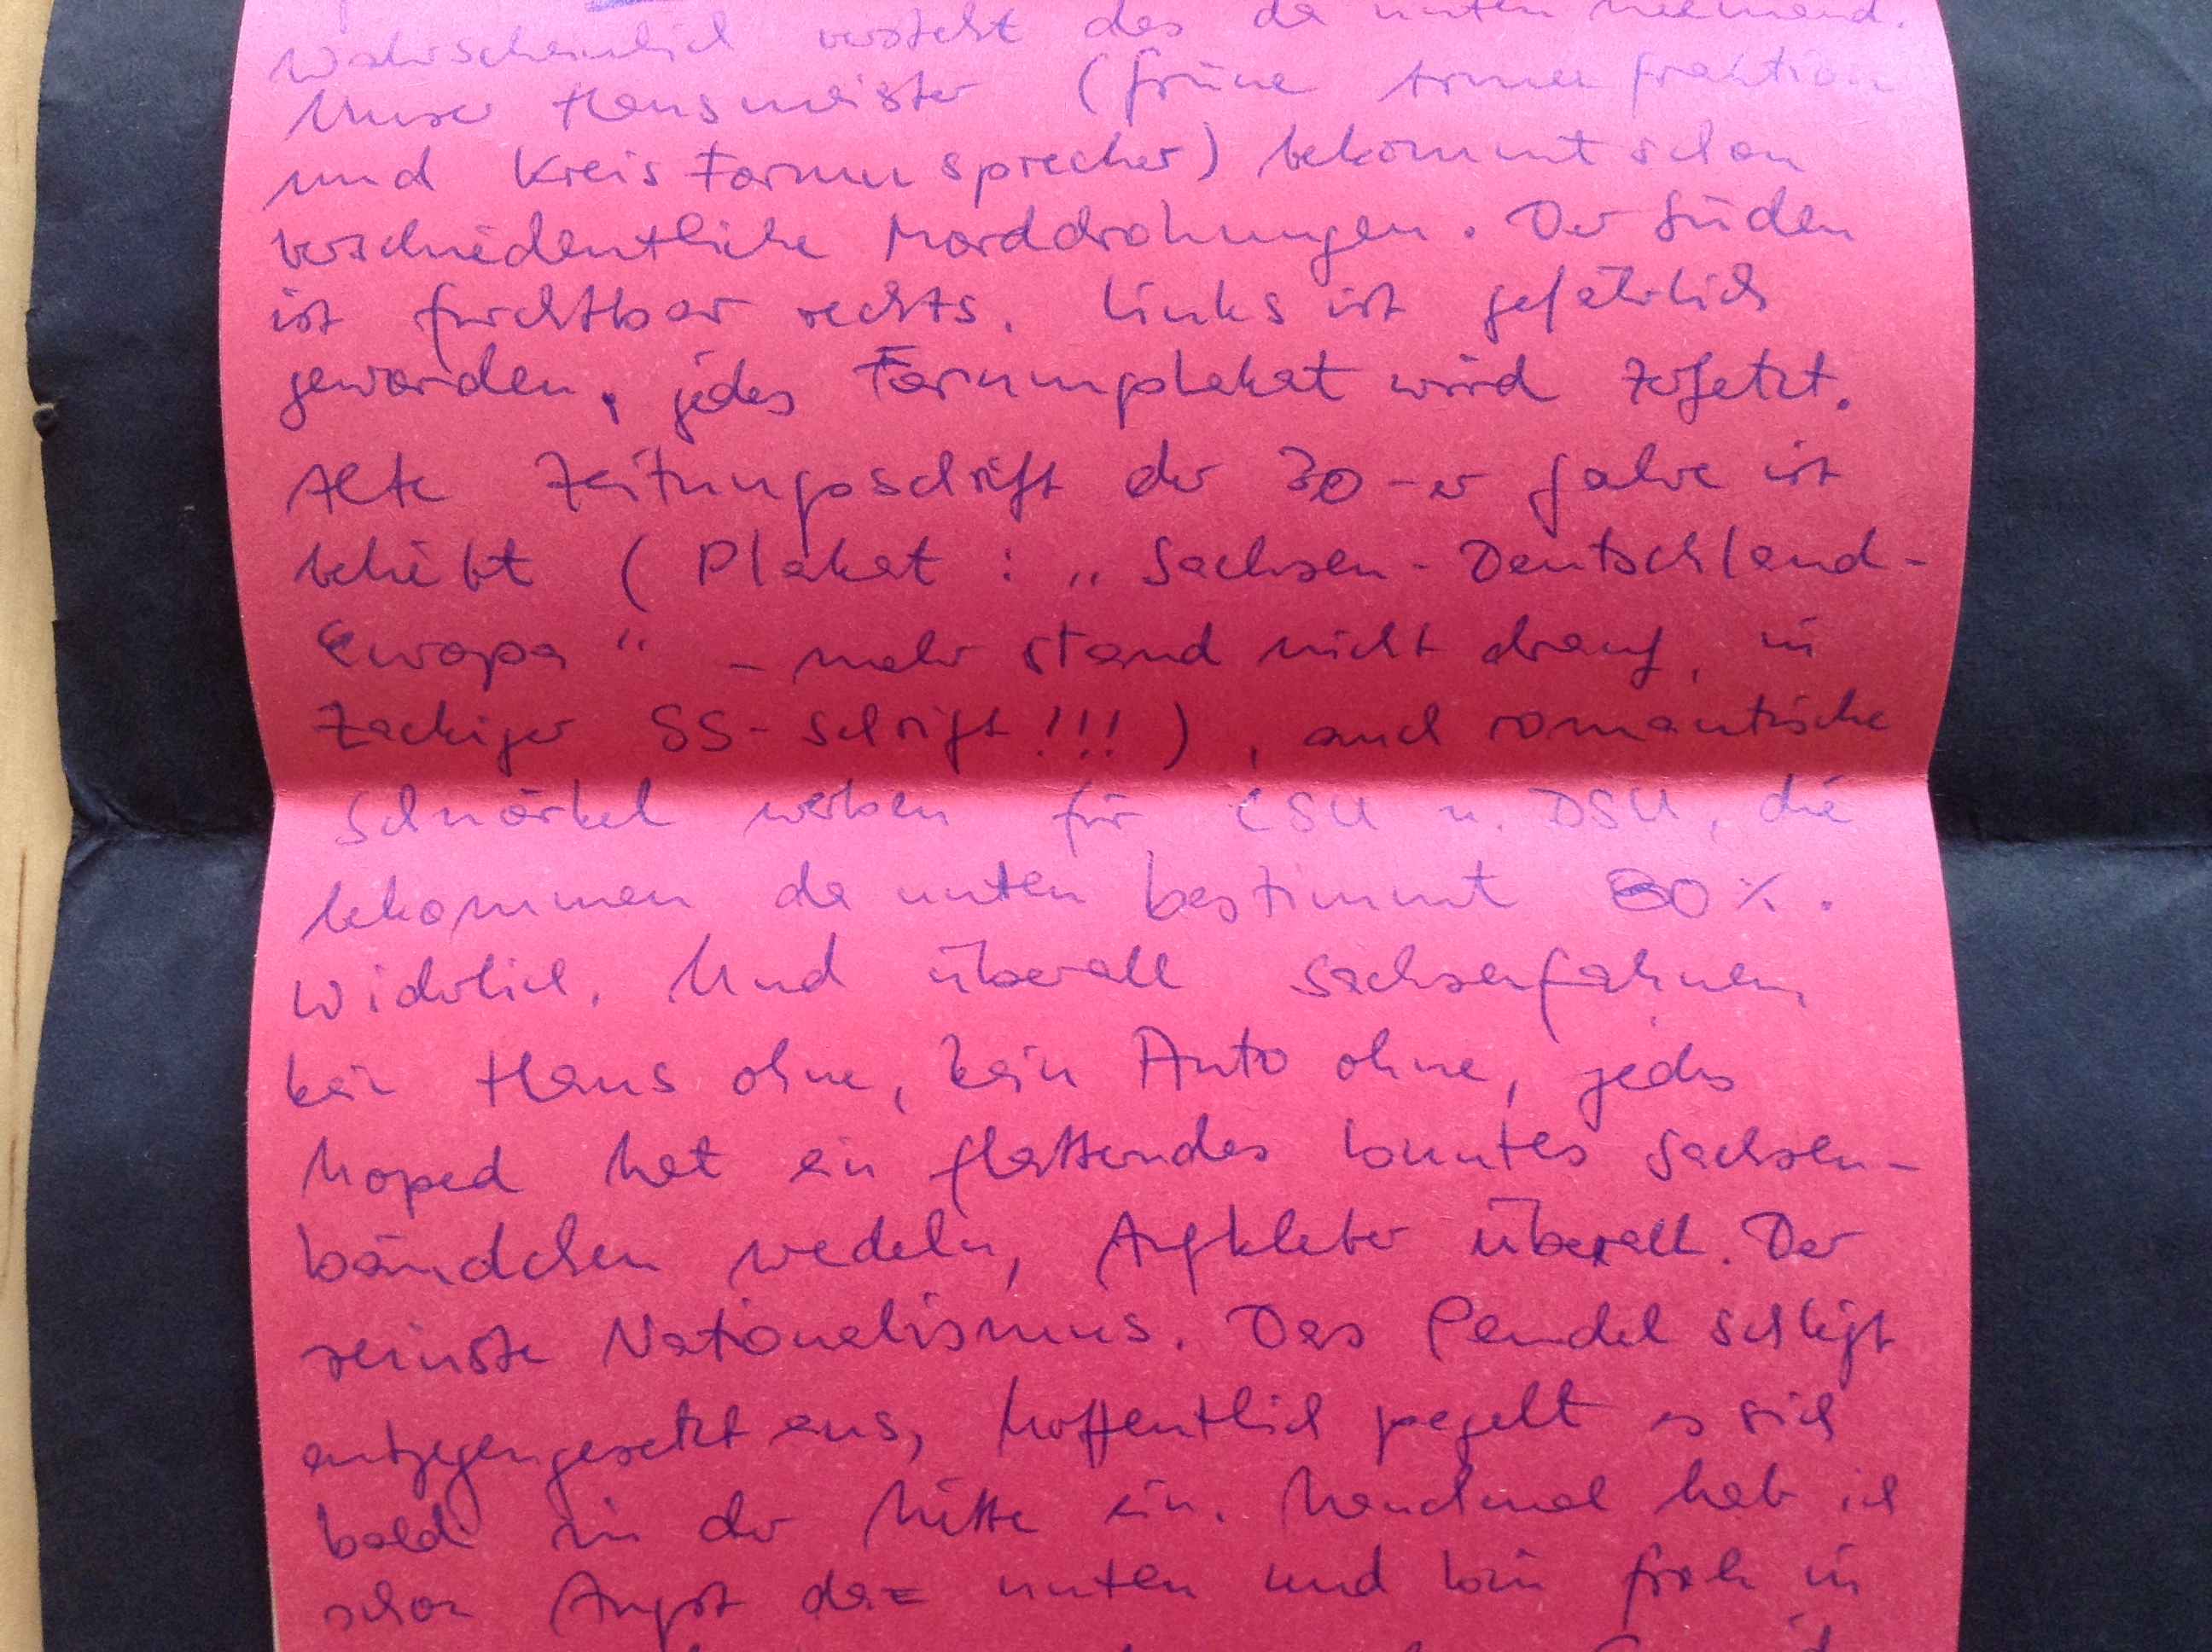 Wahrscheinlich versteht das da unten niemand.
Unser Hausmeister (Grüne Armeefraktion
und Kreis Forumsprecher) bekommt schon
verschiedentliche Morddrohungen. Der Süden
ist furchtbar rechts. Links ist gefährlich
geworden, jedes Forumplakat wird zerfetzt.
Alte Zeitungsschrift der 30-er Jahre ist
beliebt (Plakat: „Sachsen-Deutschland-
Europa" - mehr stand nicht drauf, in
Zackiger SS-Schrift!!!), auch romantische
Schnörkel werben für CSU u. DSU, die
bekommen da unten bestimmt 80%.
Widerlich. Und überall Sachsenfahnen,
kein Haus ohne, kein Auto ohne, jedes
Moped hat ein flatterndes buntes Sachsen-
bändchen wedeln, Aufkleber überall. Der
reinste Nationalismus. Das Pendel schlägt
entgegengesetzt aus, hoffentlich pegelt es sich
bald in der Mitte ein. Manchmal hab ich
schon Angst da unten und bin froh in